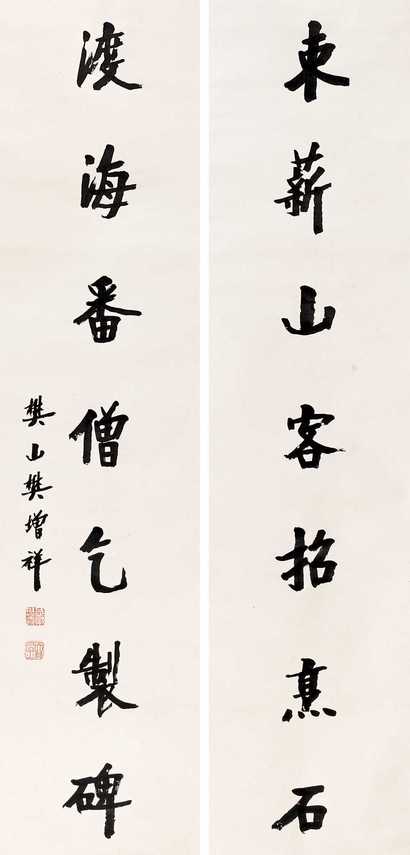 束薪山客招煑石
渡海番僧乞製碑
樊山樊增祥